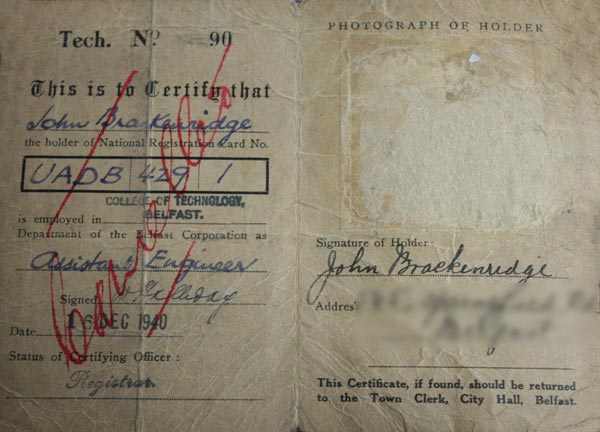 Tech. No 90
This is to Certify that
John Brackenridge
the holder of National Registration Card No.
UADB 429 1
COLLEGE OF TECHNOLOGY,
BELFAST.
is employed in
Department of the Belfast Corporation as
Assistant Engineer
Signed
Date 16 DEC 1940
Status of Certifying Officer :
Registrar
Cancelled
PHOTOGRAPH OF HOLDER
Signature of Holder :
John Brackenridge
Address
Belfast
This Certificate, if found, should be returned
to the Town Clerk, City Hall, Belfast.